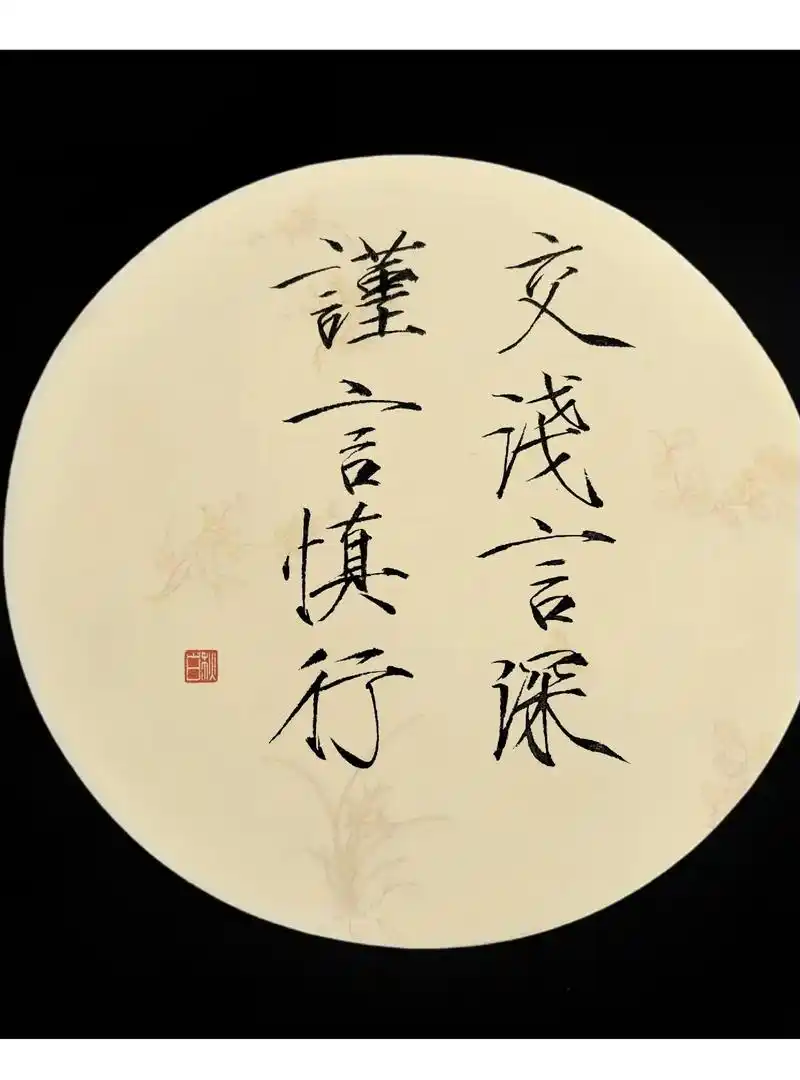 交淺言深
謹言慎行